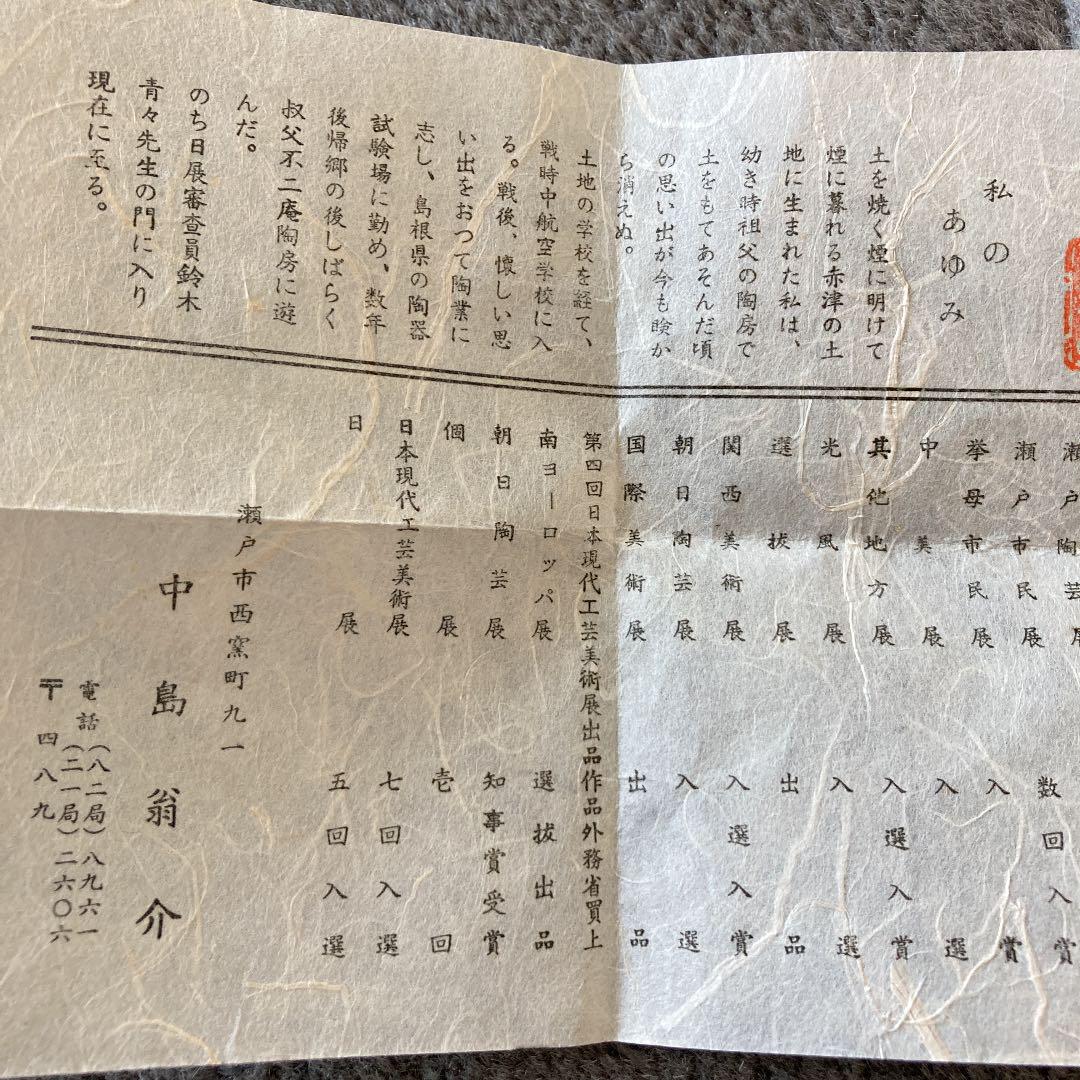 私の
あゆみ
土を焼く煙に明けて
煙に暮れる赤津の土
地に生まれた私は、
幼き時祖父の陶房で
土をもてあそんだ頃
の思い出が今も瞼か
ら消えぬ。
土地の学校を経て、
戦時中航空学校に入
る。戦後、懐しい思
い出をおつて陶業に
志し、島根県の陶器
試験場に勤め、数年
後帰郷の後しばらく
叔父不二庵陶房に遊
んだ。
のち日展審査員鈴木
青々先生の門に入り
現在に至る。
瀬戸陶芸展 数回入賞
瀬戸市民展 入賞
挙母市民展 入選
中美展 入賞
其他地方展 入選入賞
光風展 入選
選抜展 出品
関西美術展 入選入賞
朝日陶芸展 入選
国際美術展 出品
第四回日本現代工芸美術展出品作品外務省買上
南ヨーロッパ展 選抜出品
朝日陶芸展 知事賞受賞
個展 壱回
日本現代工芸美術展 七回入選
日展 五回入選
瀬戸市西窯町九一
中島翁介
電話(八二局)八九六一
(二一局)二六〇六
〒四八九